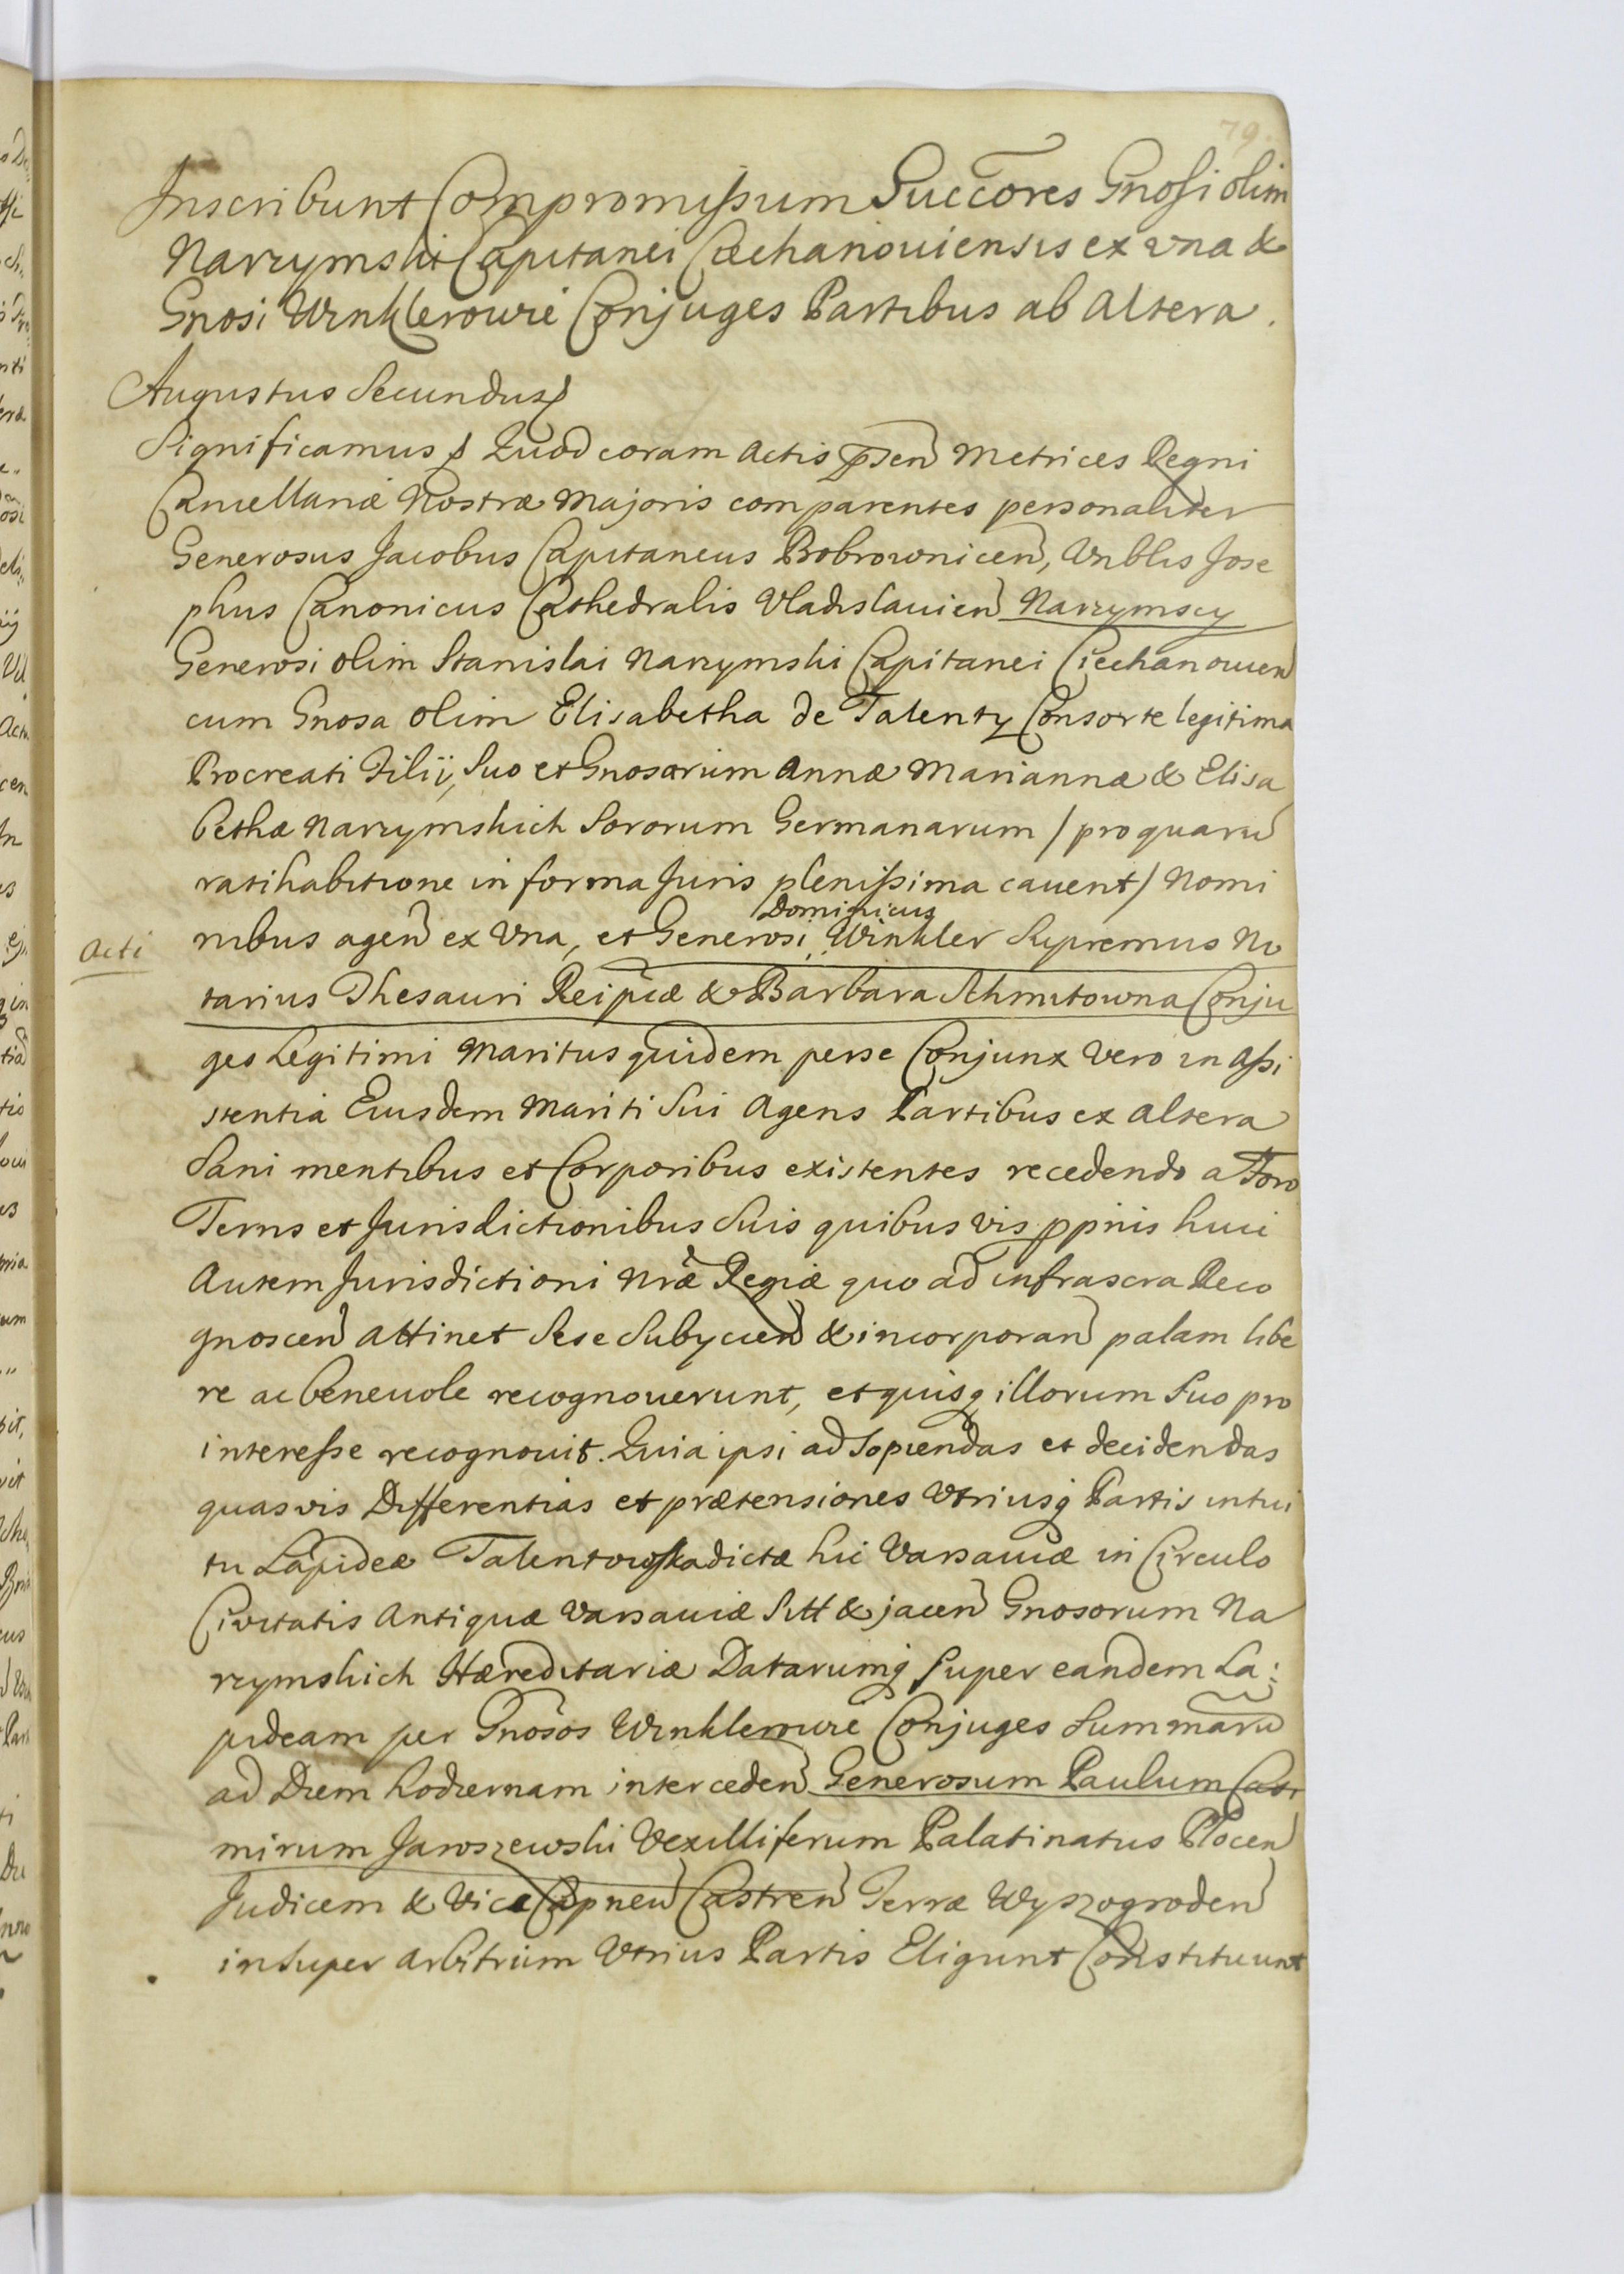 79.
Inscribunt Compromissum Succores Gnosi olim
Narzymski Capitanei Ciechanouiensis ex vna &
Gnosi Winklerowie Conjuges Partibus ab altera.
Augustus Secundus
Significamus Quod coram Actis pñsen Metrices Regni
Cancellariæ Nostræ Majoris comparentes personaliter
Generosus Jacobus Capitaneus Bobrownicen, Vnblis Jose
phus Canonicus Cathedralis Vladislauien Narzymscy
Generosi olim Stanislai Narzymski Capitanei Ciechanowien
cum Gnosa olim Elisabetha de Talenty Consorte legitima
Procreati Filij, suo et Gnosarum Annæ Mariannæ & Elisa
bethæ Narzymskich Sororum Germanarum / pro quaru
ratihabitione in forma Juris plenissima cauent / Nomi
Dominicus
Acti
nibus agen ex Vna, et Generosi Winkler Supremus No
tarius Thesauri Reipcæ & Barbara Schmitowna Conju
ges Legitimi Maritus quidem per se Conjunx Vero in Assi
stentia Eiusdem Mariti Sui Agens Partibus ex altera
Sani mentibus et Corporibus existentes recedendo a Foro
Terris et Jurisdictionibus Suis quibusvis pprijs huic
Autem Jurisdictioni Nræ Regiæ quo ad infrascra Reco
gnoscen attinet Sese Subycien & incorporan palam libe
re ac beneuole recognouerunt, et quisq illorum Suo pro
interesse recognouit. Quia ipsi ad sopiendas et decidendas
quasvis Differentias et prætensiones Vtriusq Partis intui
tu Lapideæ Talentowska dictæ hic Varsauiæ in Circulo
Civitatis Antiquæ Varsauiæ Sitt & jacen Gnosorum Na
rzymskich Hæreditariæ Datarumq super eandem La:
pideam per Gnosos Winklerowie Conjuges Summaru
ad Diem hodiernam interceden Generosum Paulum Casi
mirum Jaroszewski Vexilliferum Palatinatus Plocen
Judicem & Vice Capneu Castren Terræ Wyszogroden
in super arbitrum Vtrius Partis Eligunt Constituunt